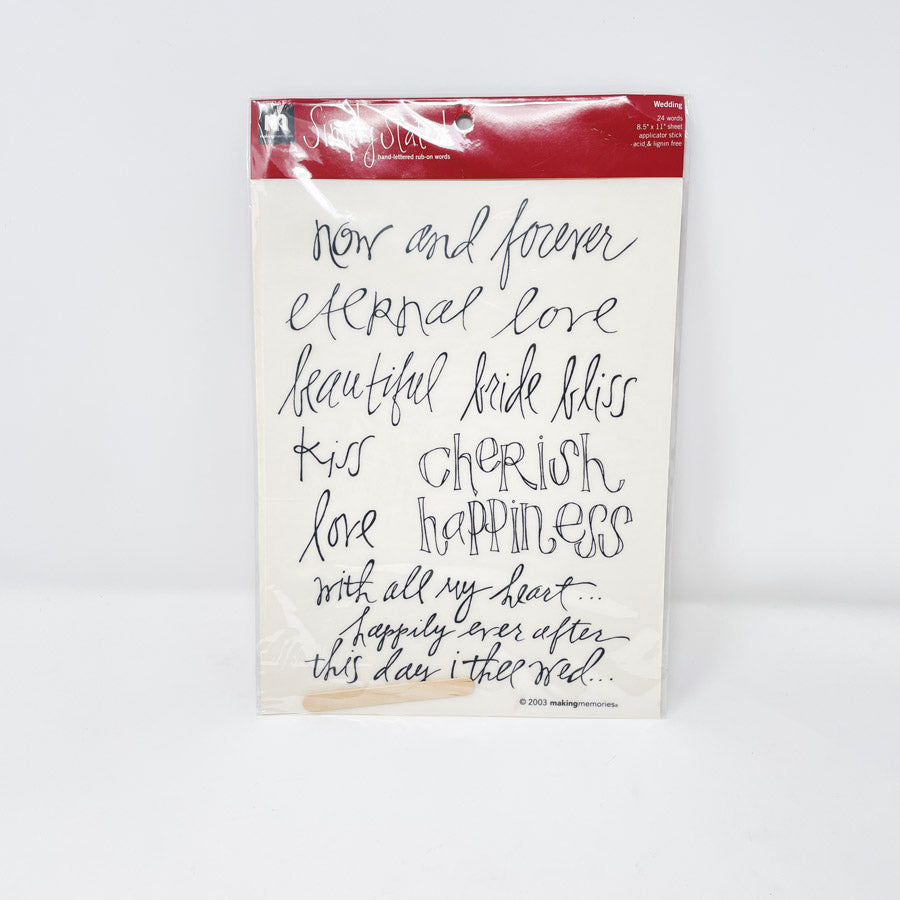 m
Simply Stated
hand-lettered rub-on words
Wedding
24 words
8.5" x 11" sheet
applicator stick
acid & lignin free
now and forever
eternal love
beautiful bride bliss
kiss cherish
love happiness
with all my heart...
happily ever after
this day i thee wed...
© 2003 makingmemories®